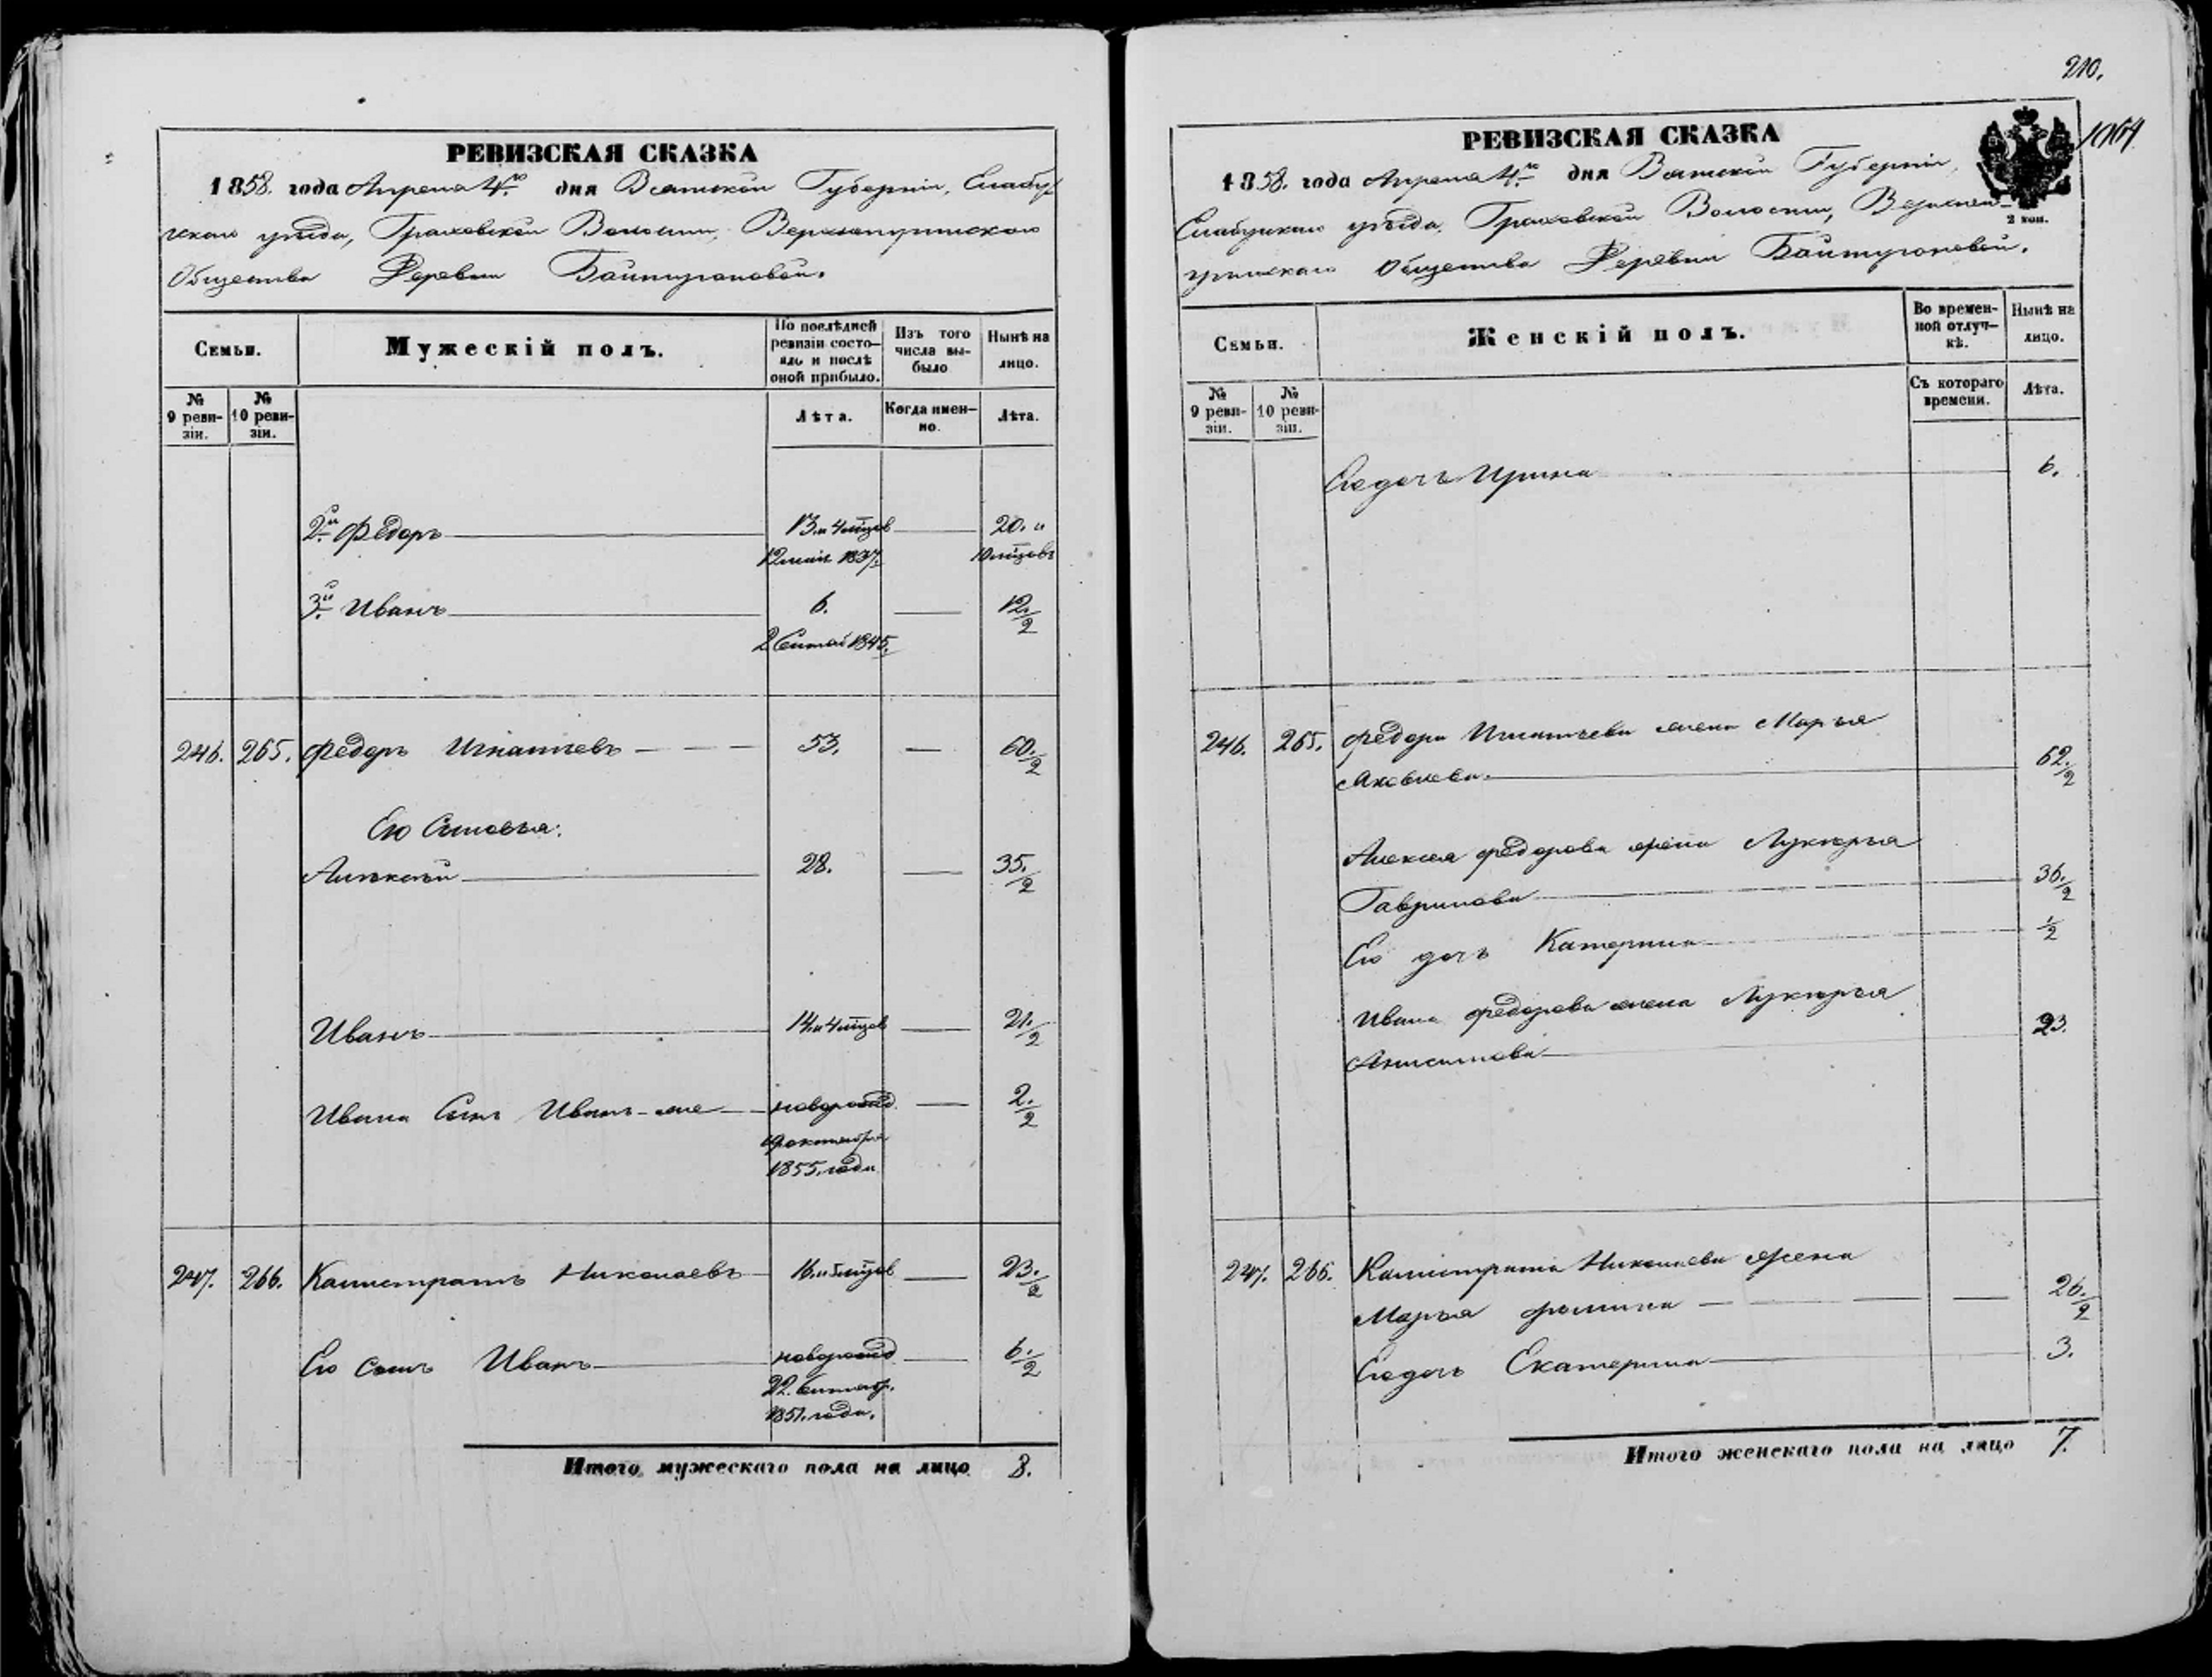 РЕВИЗСКАЯ СКАЗКА
1858. года Апреля 4го дня Вятской Губерніи, Елабуж
скаго уѣзда, Граховской Волости, Верхнеуринскаго
Общества Деревни Баитугановой.
Семьи.
Мужескій полъ.
По послѣдней ревизіи состо-
яло и послѣ оной прибыло.
Изъ того числа вы-
было
Нынѣ на лицо.
№ 9 реви-
зіи.
№ 10 реви-
зіи.
Лѣта.
Когда имен-
но.
Лѣта.
2й Федоръ 13. и 4 мцов 20. и
12 1837. 10 мцовъ
3й Иванъ 6. 12. 1/2
2 1845.
246. 265. Федоръ Игнатьевъ 53. 60. 1/2
Его Сыновья:
Алексѣй 28. 35. 1/2
Иванъ 14. и 4 мцов 21. 1/2
Ивана Сынъ Иванъ-же новорожд 2. 1/2
октября
1855. года
247. 266. Калистратъ Николаевъ 16. и мцов 23. 1/2
Его сынъ Иванъ новорожд 6. 1/2
22. Сентябр.
1851. года.
Итого мужескаго пола на лицо 8.
210.
1064
РЕВИЗСКАЯ СКАЗКА
1858. года Апреля 4го дня Вятской Губерніи,
Елабужскаго уѣзда, Граховской Волости, Верхне-
уринскаго Общества Деревни Баитугановой.
2 коп.
Семьи.
Женскій полъ.
Во времен-
ной отлуч-
кѣ.
Нынѣ на лицо.
№ 9 реви-
зіи.
№ 10 реви-
зіи.
Съ котораго времени.
Лѣта.
Его дочь Ирина 6.
246. 265. Федора Игнатьева жена Марья
Яковлева 62. 1/2
Алексея Федорова жена Лукерья
Гаврилова 36. 1/2
Его дочь Катерина 1/2
Ивана Федорова жена Лукерья
Анисимова 23.
247. 266. Калистрата Николаева жена
Марья 26. 1/2
Его дочь Екатерина 3.
Итого женскаго пола на лицо 7.